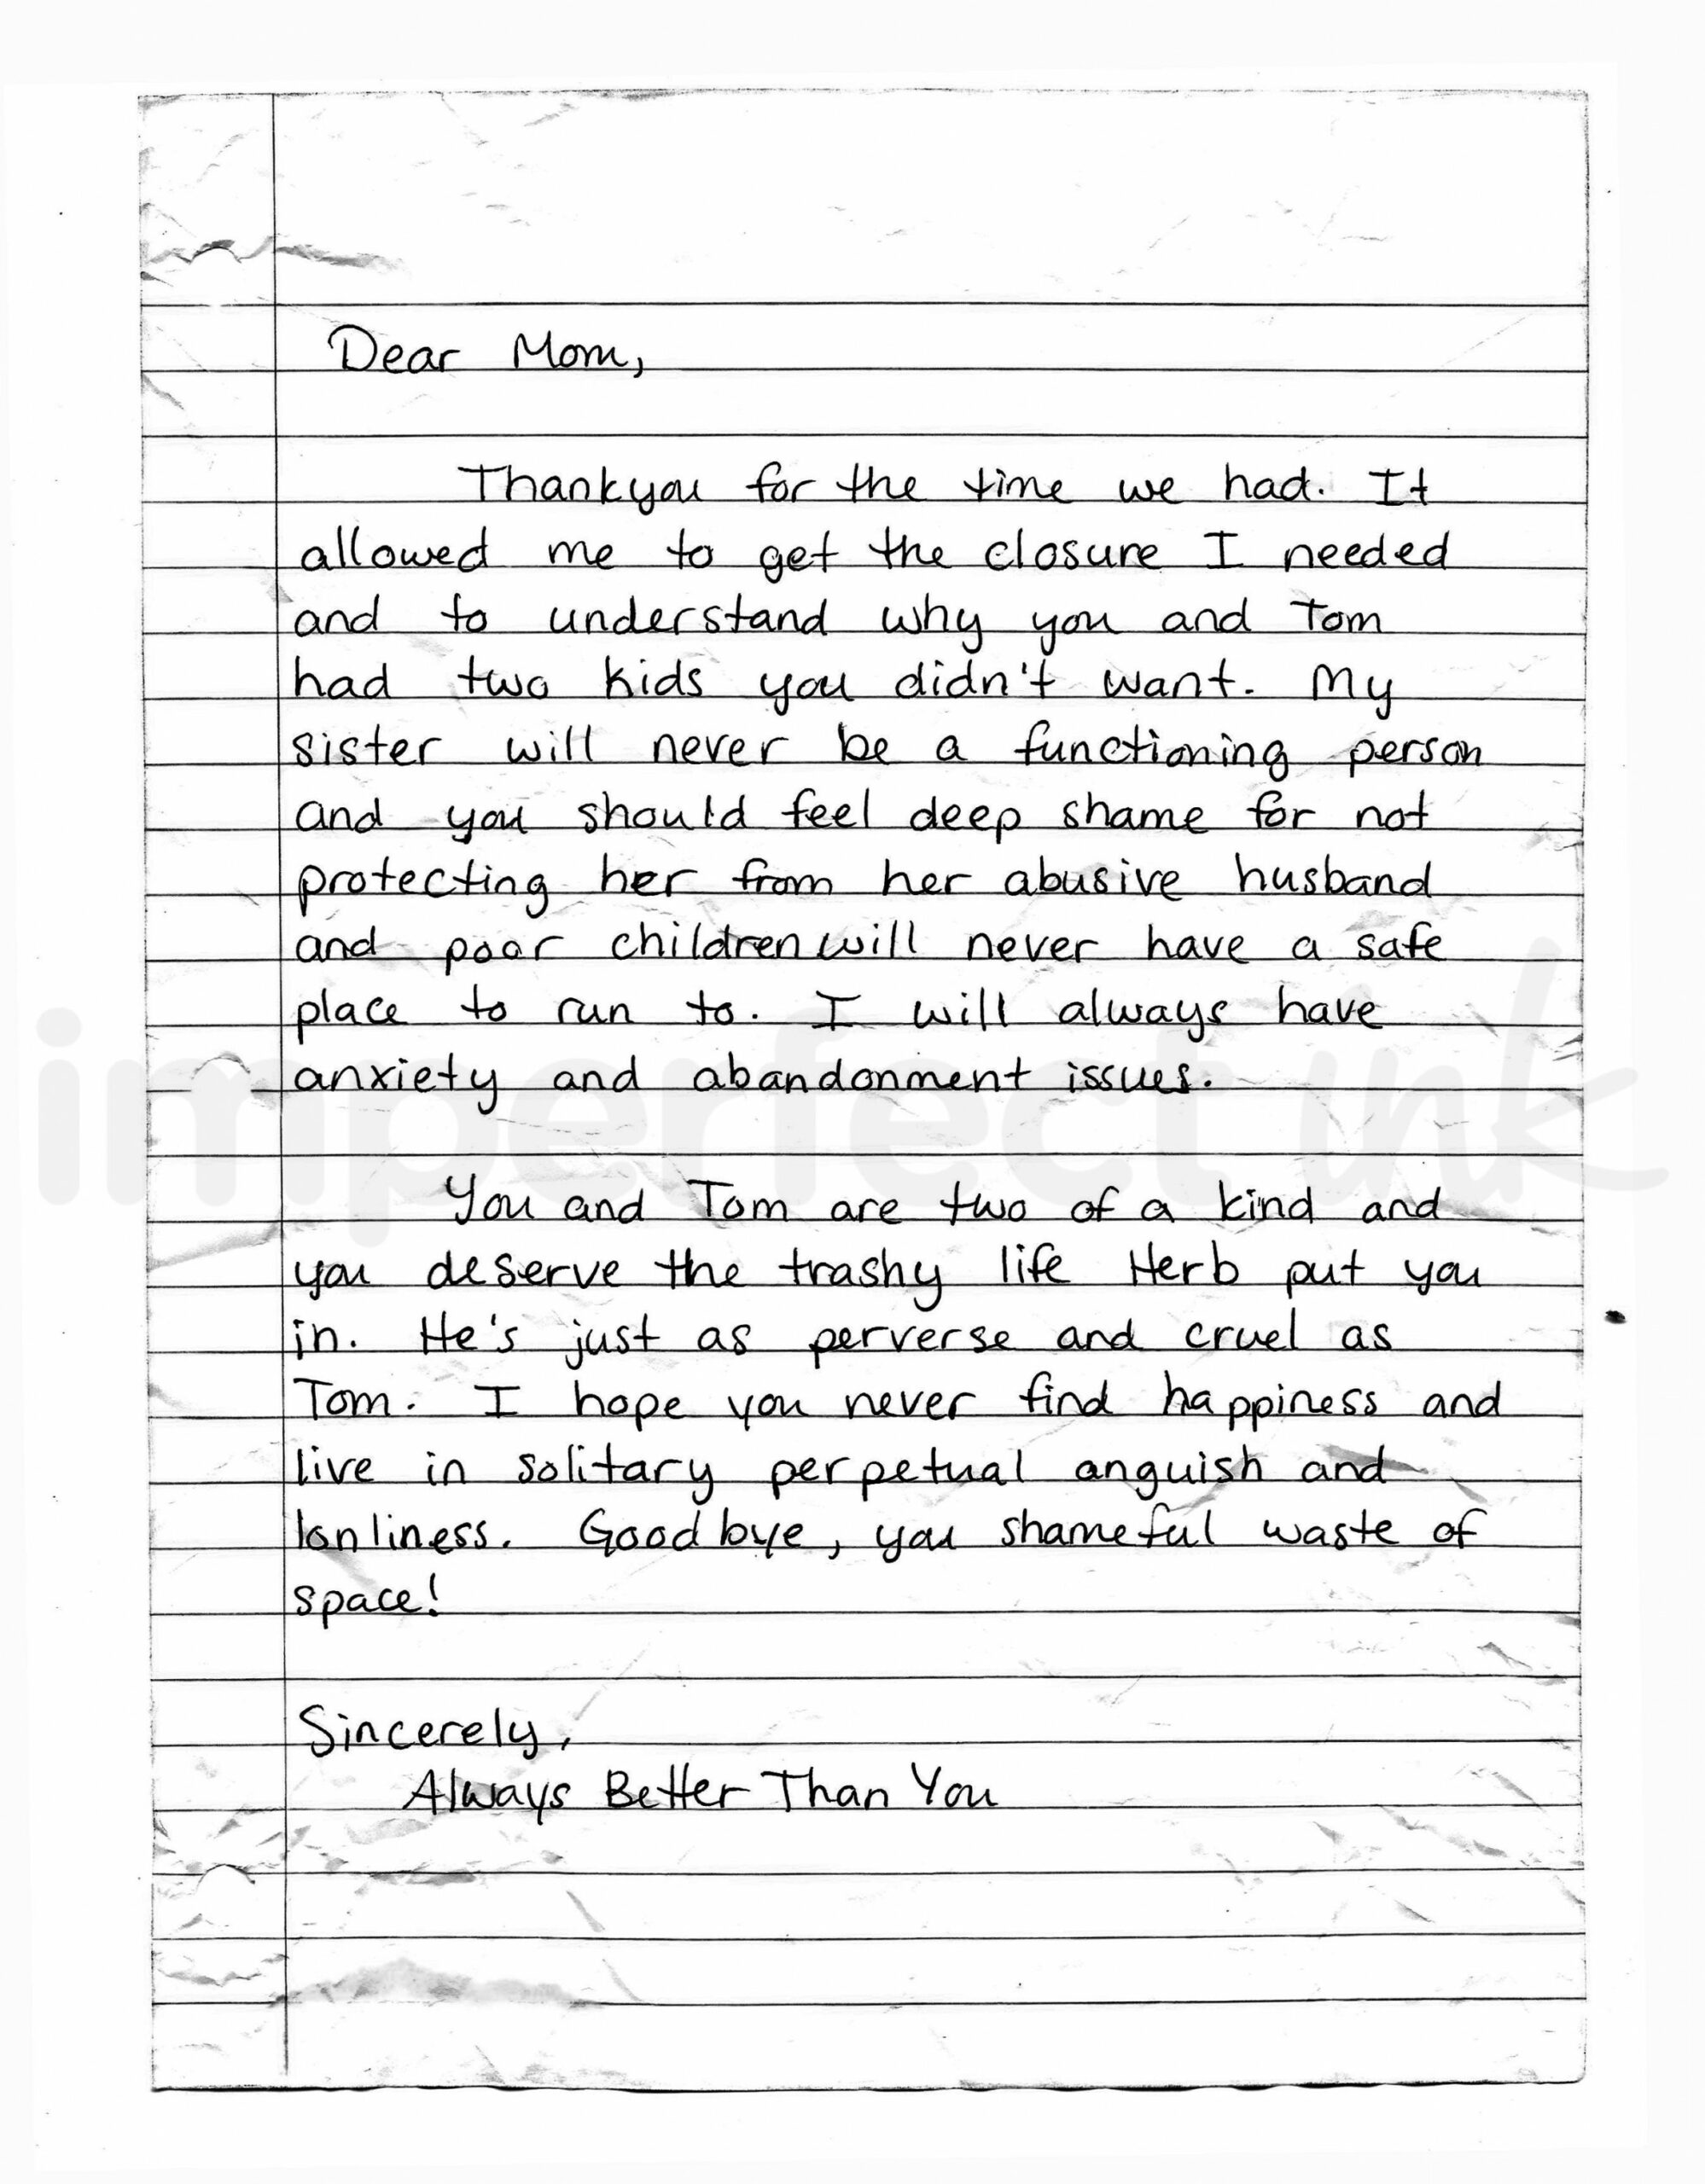 Dear Mom,
Thankyou for the time we had. It
allowed me to get the closure I needed
and to understand why you and Tom
had two kids you didn't want. My
sister will never be a functioning person
and you should feel deep shame for not
protecting her from her abusive husband
and poor children will never have a safe
place to run to. I will always have
anxiety and abandonment issues.
imperfect ink
You and Tom are two of a kind and
you deserve the trashy life Herb put you
in. He's just as perverse and cruel as
Tom. I hope you never find happiness and
live in solitary perpetual anguish and
lonliness. Goodbye, you shameful waste of
space!
Sincerely,
Always Better Than You